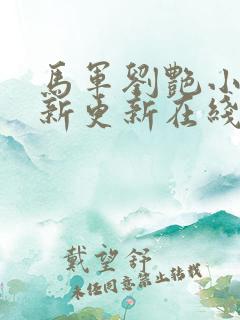 馬軍劉艷小
新更新在綫
戴望舒
未经同意禁止转载